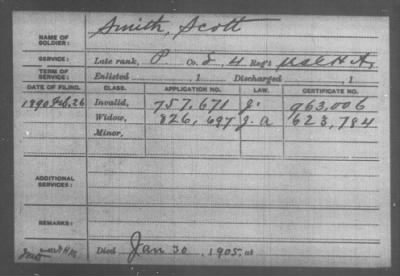 NAME OF SOLDIER: Smith, Scott
SERVICE: Late rank, P Co. I, 4 Reg't US C H A,
TERM OF SERVICE: Enlisted , 1 Discharged , 1
DATE OF FILING. CLASS. APPLICATION NO. LAW. CERTIFICATE NO.
1890 Feb. 26 Invalid, 757,671 J. 963,006
Widow, 826,697 J. a 623,784
Minor,
ADDITIONAL SERVICES:
REMARKS:
Died Jan 30, 1905, at